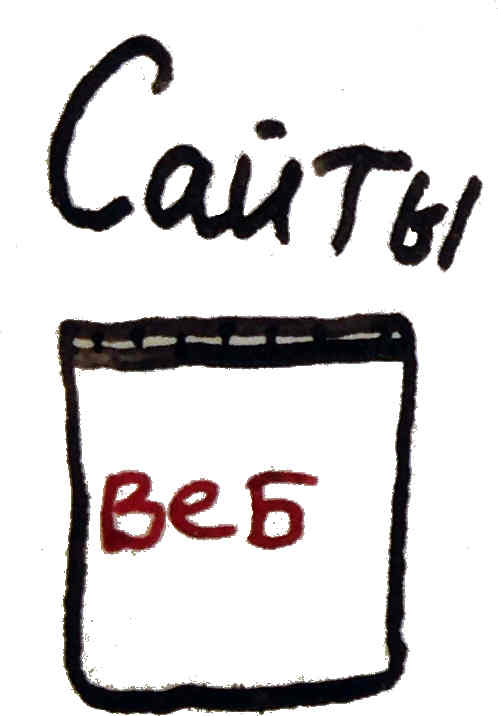 Сайты
Веб